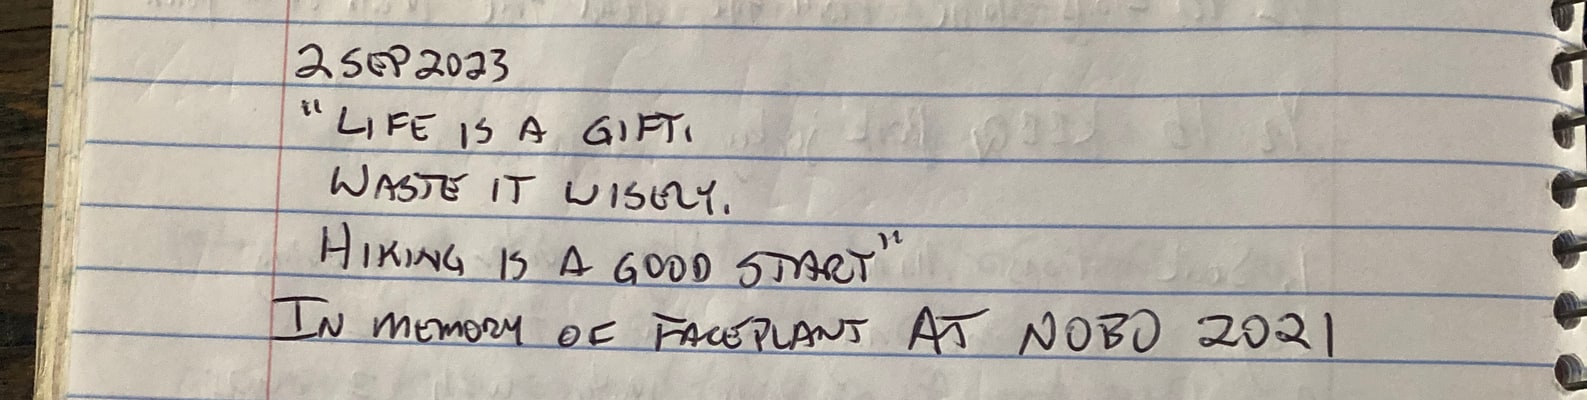 2 SEP 2023
"LIFE IS A GIFT.
WASTE IT WISELY.
HIKING IS A GOOD START"
IN MEMORY OF FACEPLANT AT NOBO 2021